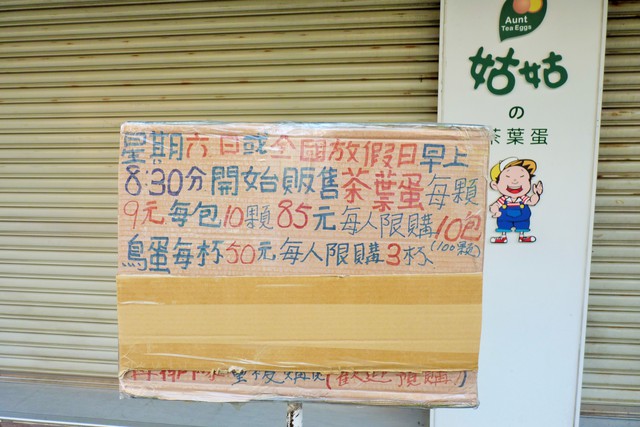 Aunt
Tea Eggs
姑姑
の
茶葉蛋
星期六日或全國放假日早上
8:30分開始販售茶葉蛋每顆
9元每包10顆85元每人限購10包
(100顆)
鳥蛋每杯50元每人限購3杯
(歡迎預購)